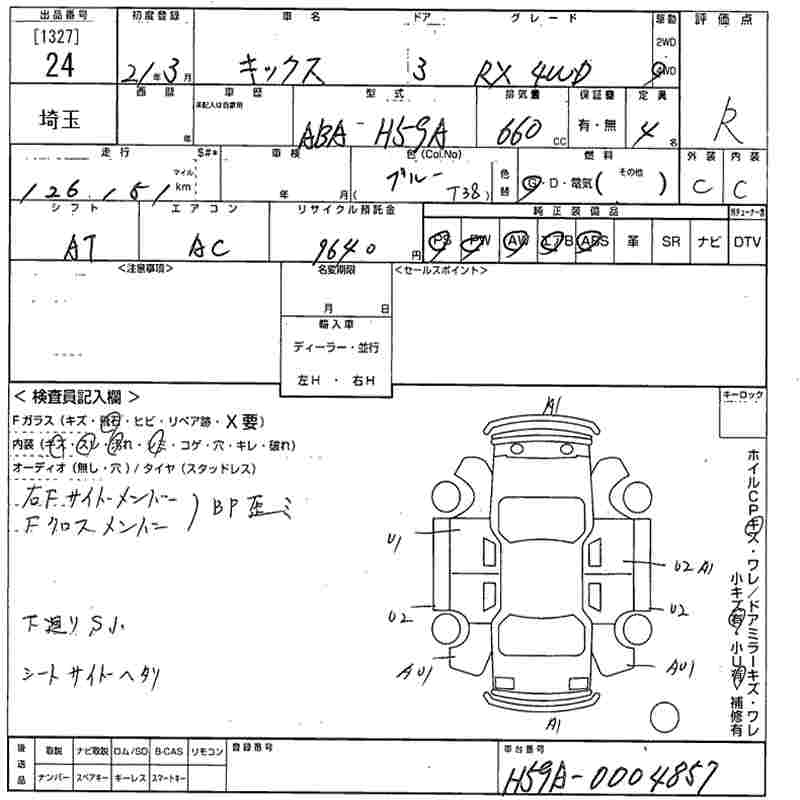 出品番号 初度登録 車名 ドア グレード 駆動 評価点
[1327] 24 21年3月 キックス 3 RX 4WD 2WD 4WD R
埼玉 西暦 年 車歴 未記入は自家用 型式 ABA-H59A 排気量 660 cc 保証書 有・無 定員 4名
走行 126,151 マイル km S#* 車検 年 月 色(Col.No) ブルー (T38) 色替 燃料 G・D・電気( その他 ) 外装 C 内装 C
シフト エアコン リサイクル預託金 純正装備品
AT AC 9640円 PS PW AW エアB ABS 革 SR ナビ DTV
<注意事項> 名変期限 <セールスポイント>
月 日
輸入車
ディーラー・並行
左H ・ 右H
< 検査員記入欄 > キーロック
Fガラス(キズ・飛石・ヒビ・リペア跡・X要)
内装(キズ・スレ・汚れ・シミ・コゲ・穴・キレ・破れ)
オーディオ(無し・穴)/タイヤ(スタッドレス)
右Fサイドメンバー
Fクロスメンバー ) BP歪ミ
下廻りSJ.
シートサイドヘタリ
A1
U1 U2 A1
U2 U2
AU1 AU1
A1
ホイルCPキズ・ワレ/ドアミラーキズ・ワレ
小キズ有・小U有・補修有
後送品 取説 ナビ取説 ロム/SD B-CAS リモコン 登録番号 車台番号
ナンバー スペアキー キーレス スマートキー H59A-0004857